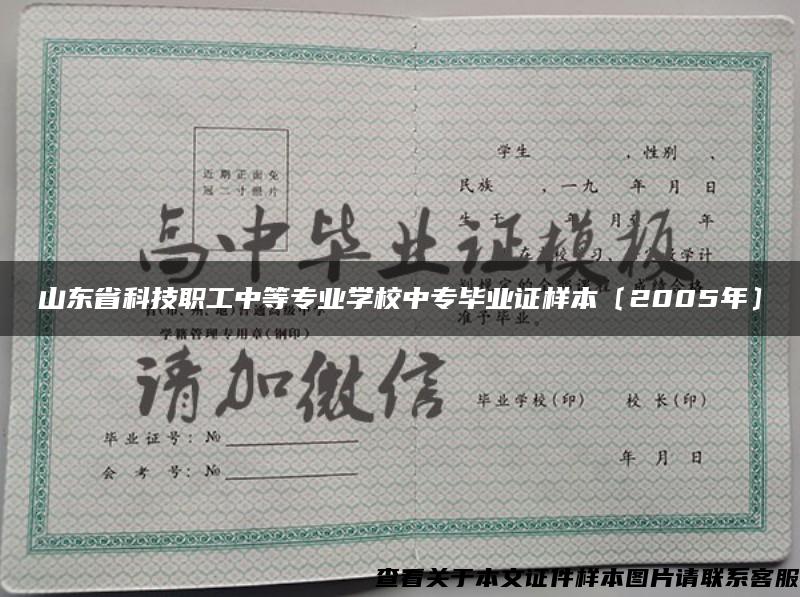 近期正面免
冠二寸照片
学籍管理专用章(钢印)
毕业证号:№
会考号:№
学生 ,性别 、
民族 ,一九 年 月 日
准予毕业。
毕业学校(印) 校长(印)
年 月 日
高中毕业证模板
山东省科技职工中等专业学校中专毕业证样本〔2005年〕
请加微信
查看关于本文证件样本图片请联系客服